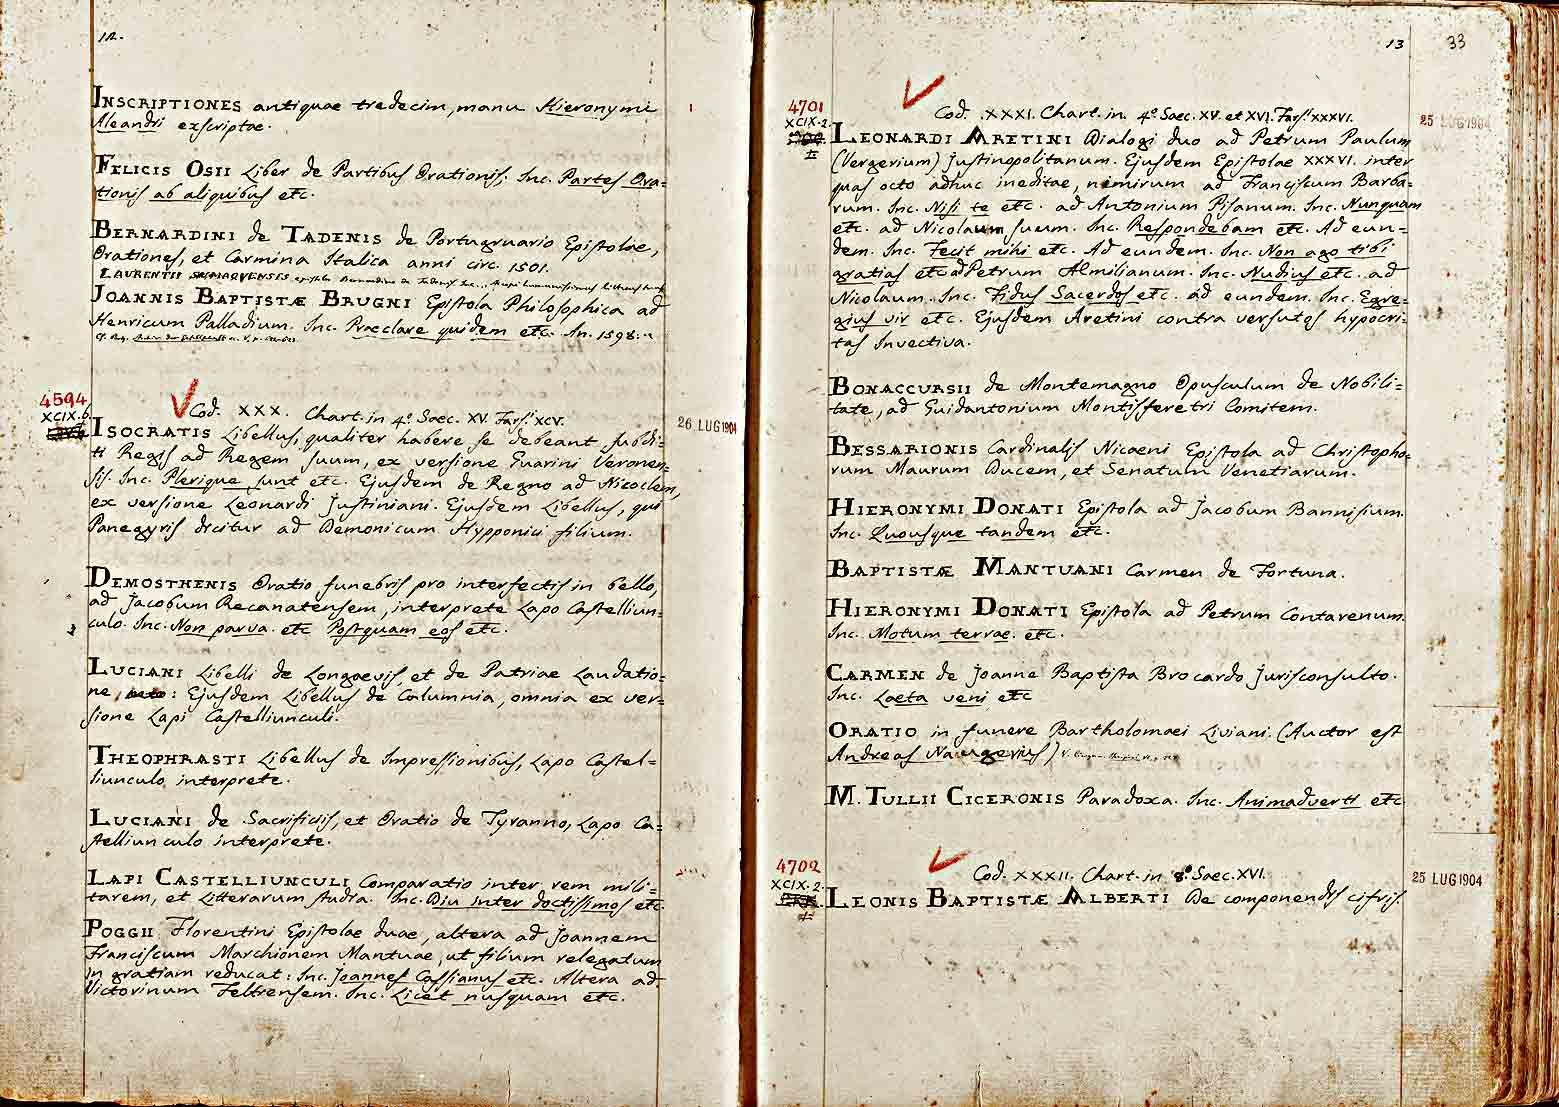 12.
INSCRIPTIONES antiquae tredecim, manu Hieronymi
Aleandri exscriptae.
FELICIS OSII Liber de Partibus Orationis; Inc. Partes Ora=
tionis ab aliquibus etc.
BERNARDINI de TADENIS de Portugruario Epistolae,
Orationes, et Carmina Italica anni circ. 1501.
LAURENTII
JOANNIS BAPTISTÆ BRUGNI Epistola Philosophica ad
Henricum Palladium. Inc. Praeclare quidem etc. An. 1598.
4594
XCIX.6
Cod. XXX. Chart. in 4.º Saec. XV. Fars.º XCV.
26 LUG 1904
ISOCRATIS Libellus, qualiter habere se debeant subdi=
ti Regis ad Regem suum, ex versione Guarini Veronen=
sis. Inc. Plerique sunt etc. Ejusdem de Regno ad Nicoclem,
ex versione Leonardi Justiniani. Ejusdem Libellus, qui
Panegyris dicitur ad Demonicum Hypponici filium.
DEMOSTHENIS Oratio funebris pro interfectis in bello,
ad Jacobum Recanatensem, interprete Lapo Castelliun=
culo. Inc. Non parva. etc Postquam eos etc.
LUCIANI Libelli de Longaevis, et de Patriae Laudatio=
ne, : Ejusdem Libellus de Calumnia, omnia ex ver=
sione Lapi Castelliunculi.
THEOPHRASTI Libellus de Impressionibus, Lapo Castel=
liunculo interprete.
LUCIANI de Sacrificiis, et Oratio de Tyranno, Lapo Ca=
stelliunculo interprete.
LAPI CASTELLIUNCULI Comparatio inter rem mili=
tarem, et Litterarum studia. Inc. Diu inter doctissimos etc.
POGGII Florentini Epistolae duae, altera ad Joannem
Franciscum Marchionem Mantuae, ut filium relegatum
in gratiam reducat: Inc. Joannes Cassianus etc. Altera ad
Victorinum Feltrensem. Inc. Licet nusquam etc.
13
33
4701
XCIX.2.
Cod. XXXI. Chart. in 4.º Saec. XV. et XVI. Fars.º XXXVI.
25 LUG 1904
LEONARDI ARETINI Dialogi duo ad Petrum Paulum
(Vergerium) Justinopolitanum. Ejusdem Epistolae XXXVI. inter
quas octo adhuc ineditae, nimirum ad Franciscum Barba=
rum. Inc. Nisi te etc. ad Antonium Pisanum. Inc. Nunquam
etc. ad Nicolaum suum. Inc. Respondebam etc. Ad eun=
dem. Inc. Fecit mihi etc. Ad eundem. Inc. Non ago tibi
gratias etc. ad Petrum Æmilianum. Inc. Nudius etc. ad
Nicolaum. Inc. Fidus Sacerdos etc. ad eundem. Inc. Egre=
gius vir etc. Ejusdem Aretini contra versutos hypocri=
tas Invectiva.
BONACCURSII de Montemagno Opusculum de Nobili=
tate, ad Guidantonium Montisferetri Comitem.
BESSARIONIS Cardinalis Nicaeni Epistola ad Christopho=
rum Maurum Ducem, et Senatum Venetiarum.
HIERONYMI DONATI Epistola ad Jacobum Bannisium.
Inc. Quousque tandem etc.
BAPTISTÆ MANTUANI Carmen de Fortuna.
HIERONYMI DONATI Epistola ad Petrum Contarenum.
Inc. Motum terrae. etc.
CARMEN de Joanne Baptista Brocardo Jurisconsulto.
Inc. Laeta veni etc
ORATIO in funere Bartholomaei Liviani. (Auctor est
Andreas Naugerius)
M. TULLII CICERONIS Paradoxa. Inc. Animadverti etc
4702
XCIX.2.
Cod. XXXII. Chart. in 8.º Saec. XVI.
25 LUG 1904
LEONIS BAPTISTÆ ALBERTI De componendis cifris.